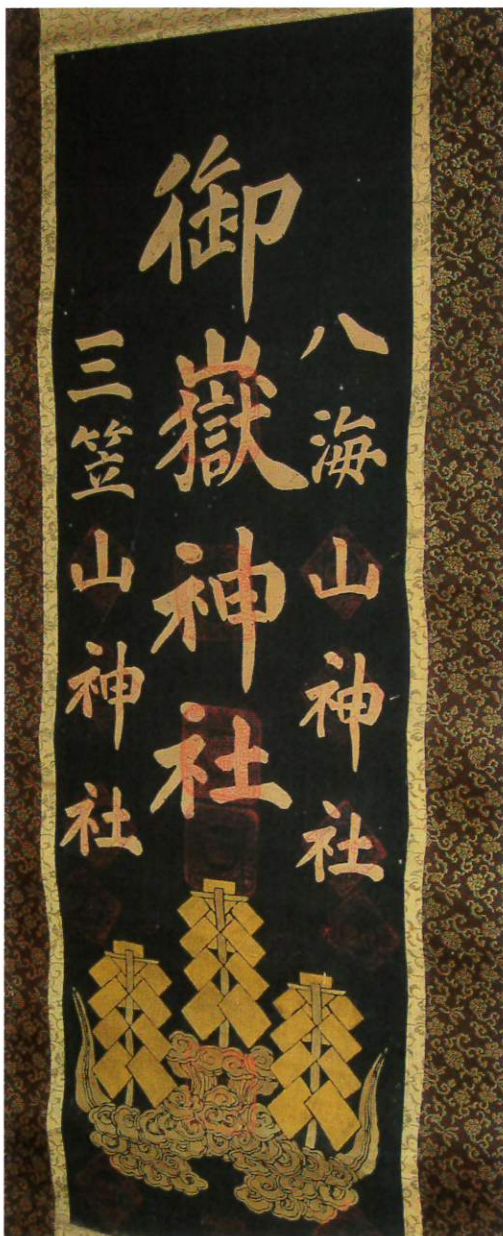 八海山神社
御嶽神社
三笠山神社